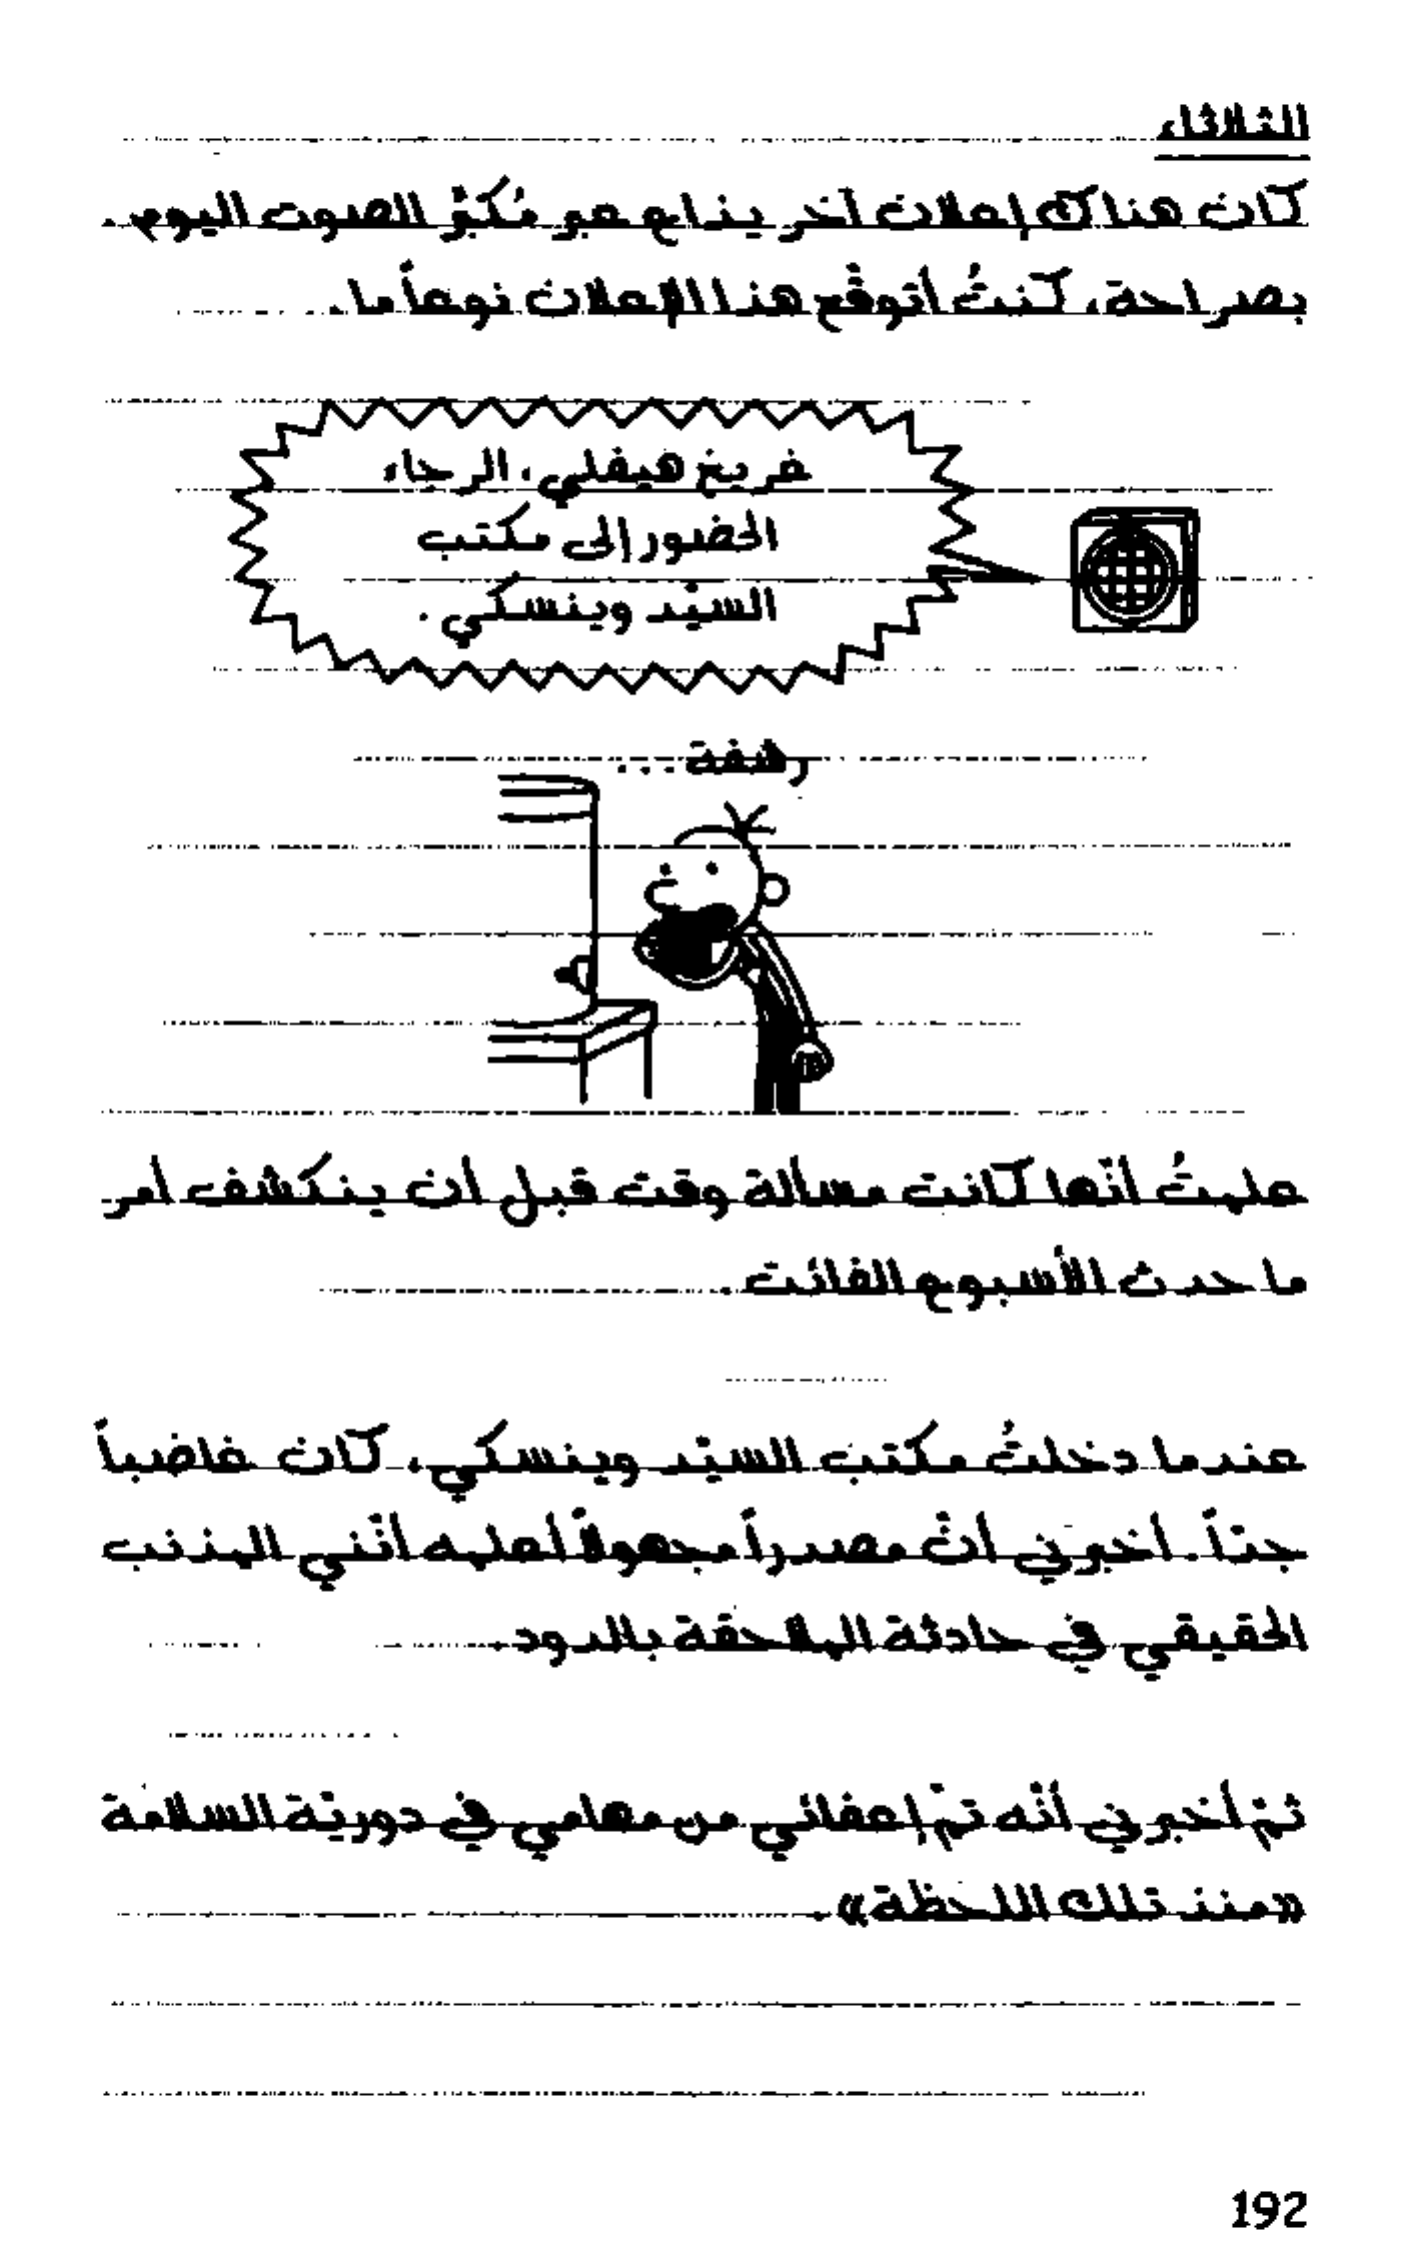 الثلاثاء
كان هناك إعلان آخر يذاع عبر مُكبِّر الصوت اليوم.
بصراحة، كنتُ أتوقّع هذا الإعلان نوعاً ما.
غريغ هيفلي، الرجاء
الحضور إلى مكتب
السيّد وينسكي.
رشفة...
علمتُ أنّها كانت مسألة وقت قبل أن ينكشف أمر
ما حدث الأسبوع الفائت.
عندما دخلتُ مكتب السيّد وينسكي، كان غاضباً
جدّاً. أخبرني أنّ مصدراً مجهولاً أعلمه أنّني المذنب
الحقيقي في حادثة الملاحقة بالدود.
ثمّ أخبرني أنّه تمّ إعفائي من مهامي في دوريّة السلامة
«منذ تلك اللحظة».
192